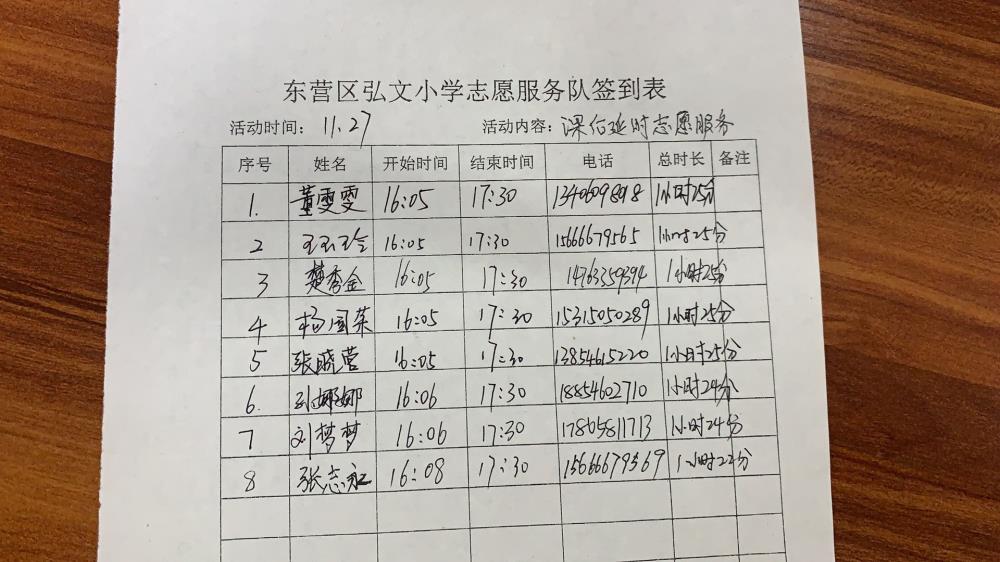 东营区弘文小学志愿服务队签到表
活动时间： 11.27 活动内容：课后延时志愿服务
序号 姓名 开始时间 结束时间 电话 总时长 备注
1. 董雯雯 16:05 17:30 13406098918 1小时25分
2 王玉玲 16:05 17:30 15666679565 1小时25分
3 楚秀金 16:05 17:30 14763359394 1小时25分
4 杨国荣 16:05 17:30 15315050289 1小时25分
5 张晓萱 16:05 17:30 13854615220 1小时25分
6. 孙娜娜 16:06 17:30 18854602710 1小时24分
7 刘梦梦 16:06 17:30 17805811713 1小时24分
8 张志永 16:08 17:30 15666679569 1小时22分